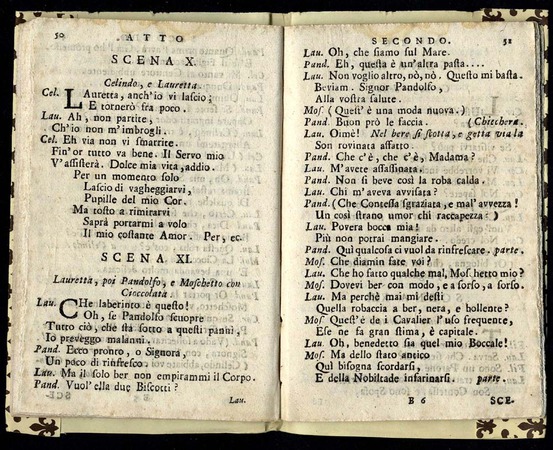 50 ATTO
SCENA X.
Celindo, e Lauretta.
Cel. LAuretta, anch'io vi lascio;
E tornerò fra poco.
Lau. Ah, non partite,
Ch'io non m'imbrogli.
Cel. Eh via non vi smarrite.
Fin'or tutto va bene. Il Servo mio
V'assisterà. Dolce mia vita, addio.
Per un momento solo
Lascio di vagheggiarvi,
Pupille del mio Cor.
Ma tosto a rimirarvi
Saprà portarmi a volo
Il mio costante Amor. Per, ec.
SCENA XI.
Lauretta, poi Pandolfo, e Moschetto con
Cioccolata
Lau. CHe laberinto è questo!
Oh, se Pandolfo scuopre
Tutto ciò, che stà sotto a questi panni,
Io preveggo malanni.
Pand. Ecco pronto, o Signora,
Un poco di rinfresco.
Lau. Ma il solo ber non empirammi il Corpo.
Pand. Vuol'ella due Biscotti?
Lau.
SECONDO. 51
Lau. Oh, che siamo sul Mare.
Pand. Eh, questa è un'altra pasta....
Lau. Non voglio altro, nò, nò. Questo mi basta.
Beviam. Signor Pandolfo,
Alla vostra salute.
Mos. (Quest'è una moda nuova.)
Pand. Buon prò le faccia. (Chicchera.
Lau. Oimè! Nel bere si scotta, e getta via la
Son rovinata affatto.
Pand. Che c'è, che c'è, Madama?
Lau. M'avete assassinata.
Pand. Non si beve così la roba calda.
Lau. Chi m'aveva avvisata?
Pand. (Che Contessa sgraziata, e mal'avvezza!
Un così strano umor chi raccapezza?)
Lau. Povera bocca mia!
Più non potrai mangiare.
Pand. Quì qualcosa ci vuol da rinfrescare. parte.
Mos. Che diamin fate voi?
Lau. Che ho fatto qualche mal, Moschetto mio?
Mos. Dovevi ber con modo, e a sorso, a sorso.
Lau. Ma perchè mai mi desti
Quella robaccia a ber, nera, e bollente?
Mos. Quest'è de i Cavalier l'uso frequente,
Ese ne fa gran stima, è capitale.
Lau. Oh, benedetto sia quel mio Boccale!
Mos. Ma dello stato antico
Quì bisogna scordarsi,
E della Nobiltade infarinarsi. parte.
B 6 SCE-